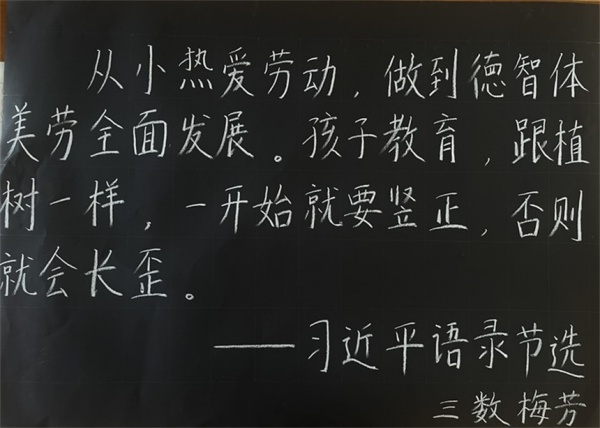 从小热爱劳动，做到德智体
美劳全面发展。孩子教育，跟植
树一样，一开始就要竖正，否则
就会长歪。
——习近平语录节选
三数梅芳